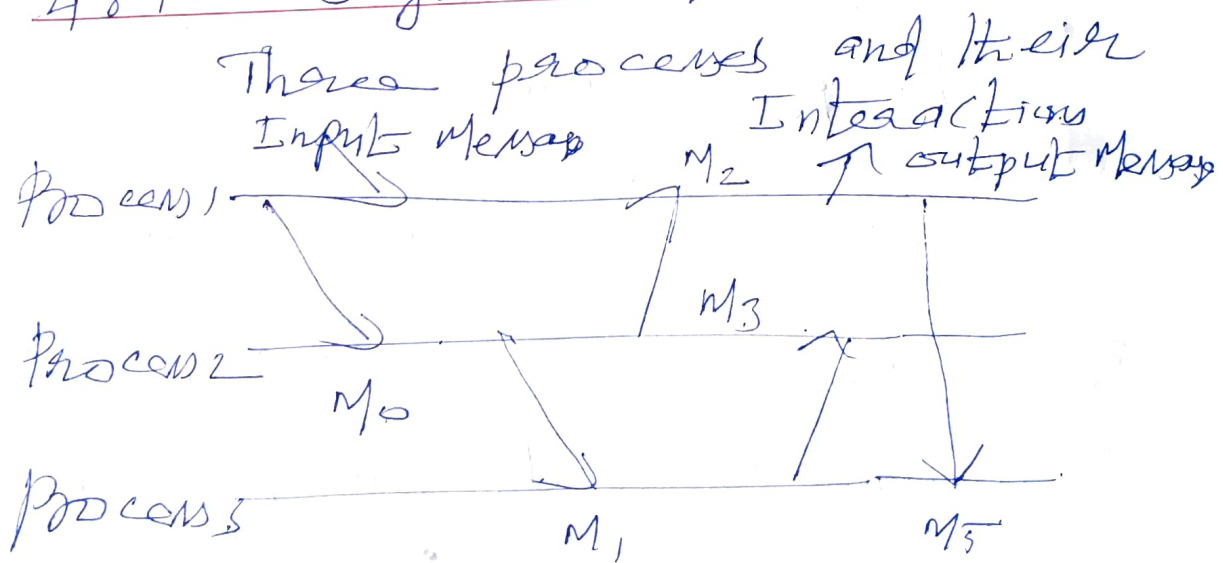 Three processes and their
Interactions
Input Message
M2
output Message
Process 1
M3
Process 2
M0
Process 3
M1
M5